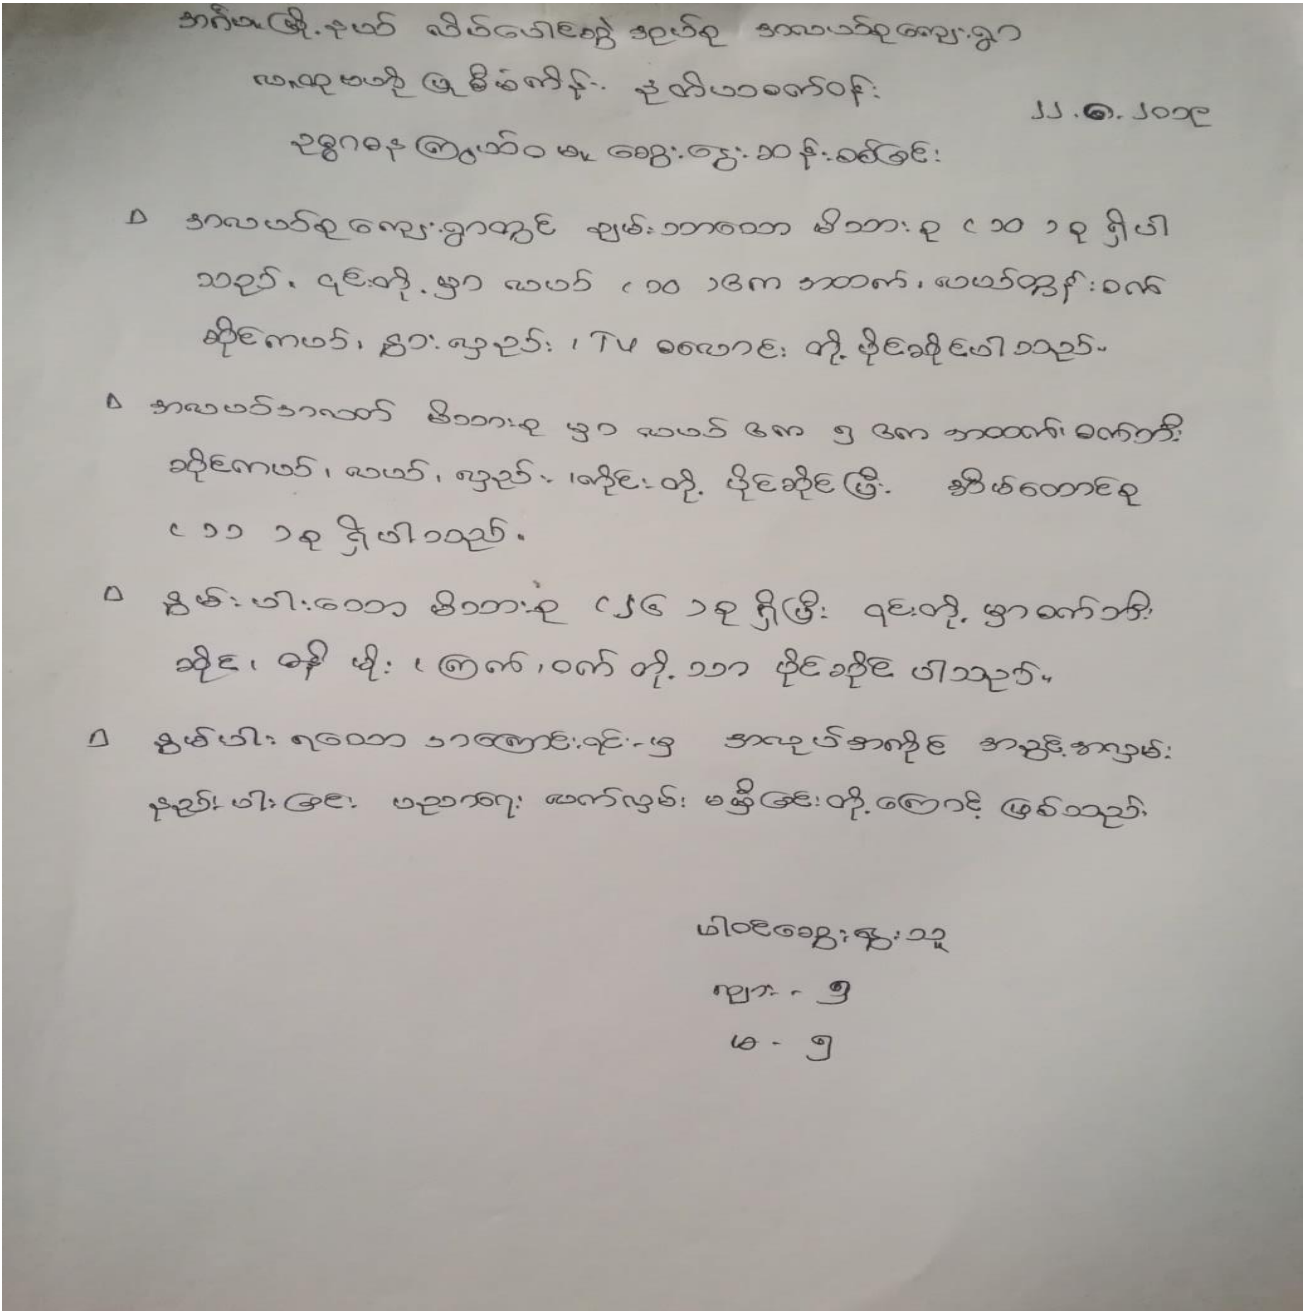 အင်္ဂပူမြို့နယ် လိပ်ပေါင်ခွဲ အုပ်စု အလယ်စုကျေးရွာ
လူထုဗဟိုပြုစီမံကိန်း ဒုတိယစက်ဝန်း
၂၂.၈.၂၀၁၉
ဥစ္စာဓနကြွယ်ဝမှု ဆွေးနွေးဆန်းစစ်ခြင်း
အလယ်စုကျေးရွာတွင် ချမ်းသာသော မိသားစု (၁၀) စု ရှိပါ
သည်။ ၎င်းတို့မှာ လယ် (၁၀) ဧက အထက်၊ လယ်ထွန်စက်
ဆိုင်ကယ်၊ နွား၊ လှည်း၊ TV စလောင်း တို့ ပိုင်ဆိုင်ပါသည်။
အလယ်အလတ် မိသားစု မှာ လယ် ဧက ၅ ဧက အထက်၊ စက်ဘီး
ဆိုင်ကယ်၊ လယ်၊ လှည်း၊ ကိုင်းတို့ ပိုင်ဆိုင်ပြီး အိမ်ထောင်စု
(၁၁) စု ရှိပါသည်။
နွမ်းပါးသော မိသားစု (၂၆) စု ရှိပြီး ၎င်းတို့မှာ စက်ဘီး
ဆိုင်၊ ဓနိမိုး၊ ကြက်၊ ဝက် တို့သာ ပိုင်ဆိုင်ပါသည်။
နွမ်ပါး ရသော အကြောင်းရင်းမှ အလုပ်အကိုင် အခွင့်အလှမ်း
နည်းပါးခြင်း ပညာရေး လက်လှမ်း မမှီခြင်းတို့ကြောင့် ဖြစ်သည်။
ပါဝင်ဆွေးနွေးသူ
ကျား - ၅
မ - ၅